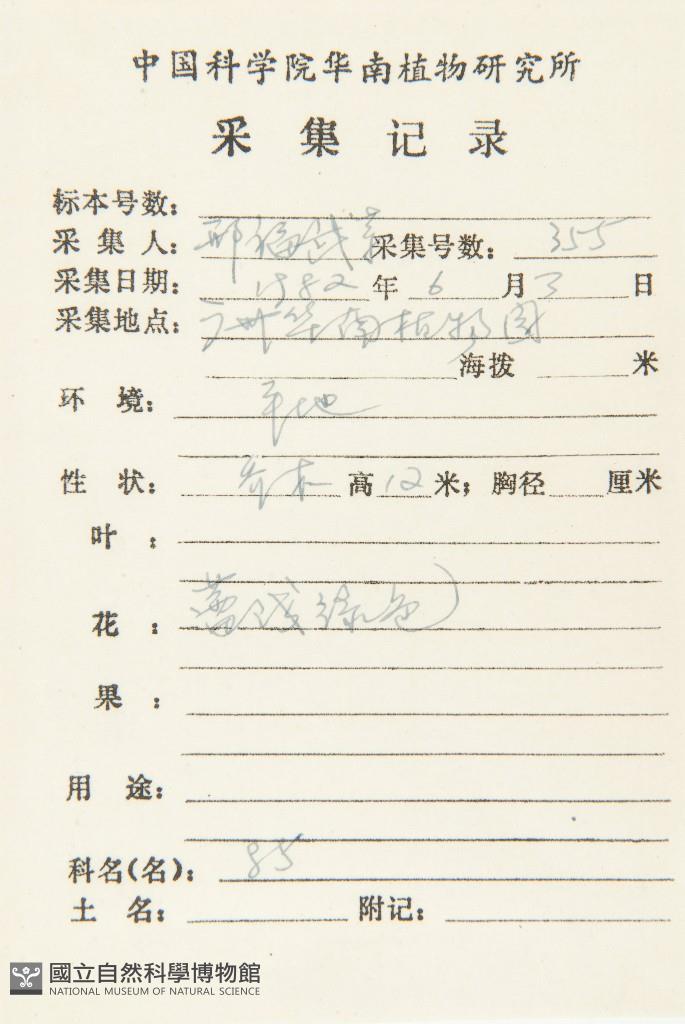 中国科学院华南植物研究所
采集记录
标本号数：
采集人：邢福武等 采集号数：355
采集日期：1982年6月3日
采集地点：广州华南植物园
海拨 米
环境：平地
性状：乔木 高12米；胸径 厘米
叶：
花：蕾浅绿色
果：
用途：
科名(名)：85
土名： 附记：
國立自然科學博物館
NATIONAL MUSEUM OF NATURAL SCIENCE